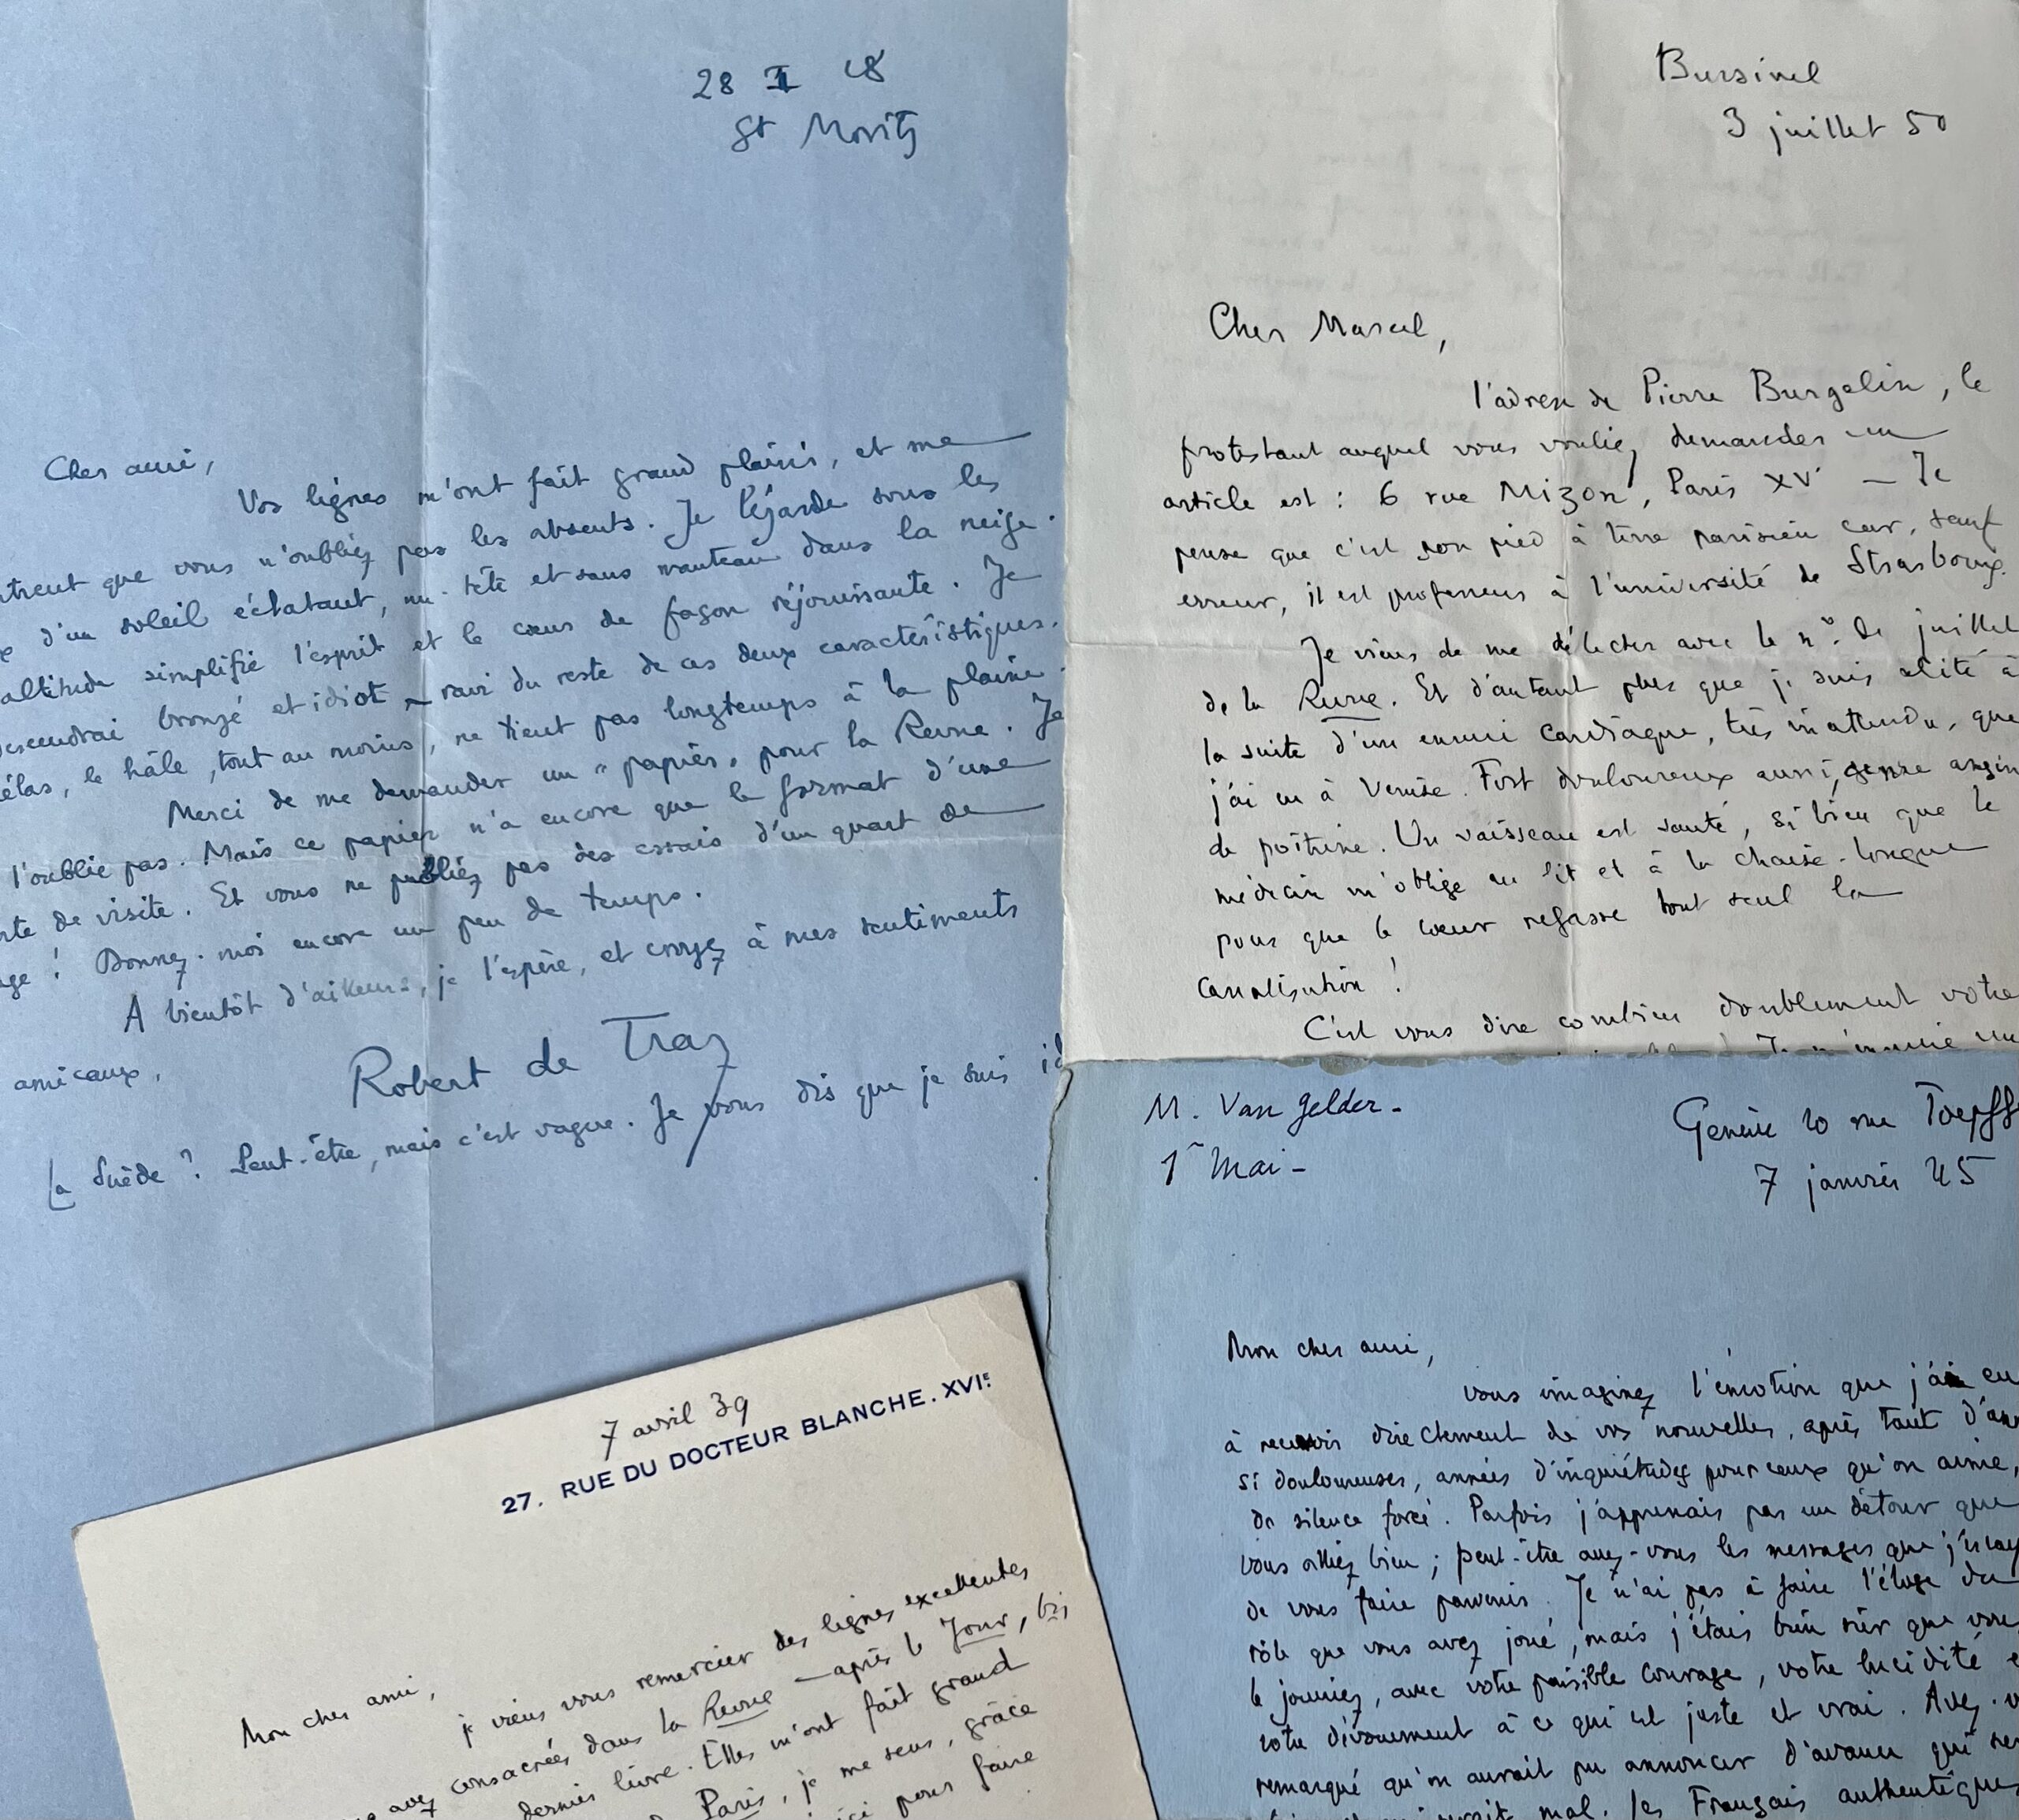 28 I 48
St Moritz
Cher ami,
Vos lignes m'ont fait grand plaisir, et me
ntrent que vous n'oubliez pas les absents. Je lézarde sous les
d'un soleil éclatant, nu-tête et sans manteau dans la neige.
altitude simplifie l'esprit et le cœur de façon réjouissante. Je
descendrai bronzé et idiot – ravi du reste de ces deux caractéristiques.
élas, le hâle, tout au moins, ne tient pas longtemps à la plaine.
Merci de me demander un "papier" pour la Revue. Je
l'oublie pas. Mais ce papier n'a encore que le format d'une
rte de visite. Et vous ne publiez pas des essais d'un quart de
age ! Donnez-moi encore un peu de temps.
A bientôt d'ailleurs, je l'espère, et croyez à mes sentiments
amicaux,
Robert de Traz
La Suède ? Peut-être, mais c'est vague. Je vous dis que je suis id
Bursinel
3 juillet 50
Cher Marcel,
l'adresse de Pierre Burgelin, le
protestant auquel vous vouliez demander un
article est : 6 rue Mizon, Paris XV – Je
pense que c'est son pied à terre parisien car, sauf
erreur, il est professeur à l'université de Strasbourg.
Je viens de me délecter avec le n° de juillet
de la Revue. Et d'autant plus que je suis alité à
la suite d'un ennui cardiaque, très inattendu, que
j'ai eu à Venise. Fort douloureux aussi, genre angin
de poitrine. Un vaisseau est sauté, si bien que le
médecin m'oblige au lit et à la chaise-longue
pour que le cœur refasse tout seul la
canalisation !
C'est vous dire combien doublement votre
M. Van Gelder -
1er Mai -
Genève 20 rue Toepff
7 janvier 45
Mon cher ami,
vous imaginez l'émotion que j'ai eu
à recevoir directement de vos nouvelles, après tant d'ann
si douloureuses, années d'inquiétudes pour ceux qu'on aime,
de silence forcé. Parfois j'apprenais par un détour que
vous alliez bien ; peut-être avez-vous les messages que j'essay
de vous faire parvenir. Je n'ai pas à faire l'éloge du
rôle que vous avez joué, mais j'étais bien sûr que vous
le joueriez, avec votre paisible courage, votre lucidité e
votre dévouement à ce qui est juste et vrai. Avez-v
remarqué qu'on aurait pu annoncer d'avance qui se
mal. Les Français authentiques
7 avril 39
27. RUE DU DOCTEUR BLANCHE. XVIE
Mon cher ami,
je viens vous remercier des lignes excellentes
avez consacrées dans la Revue – après le Jour,
dernier livre. Elles m'ont fait grand
Paris, je me sens, grâce
ici pour faire